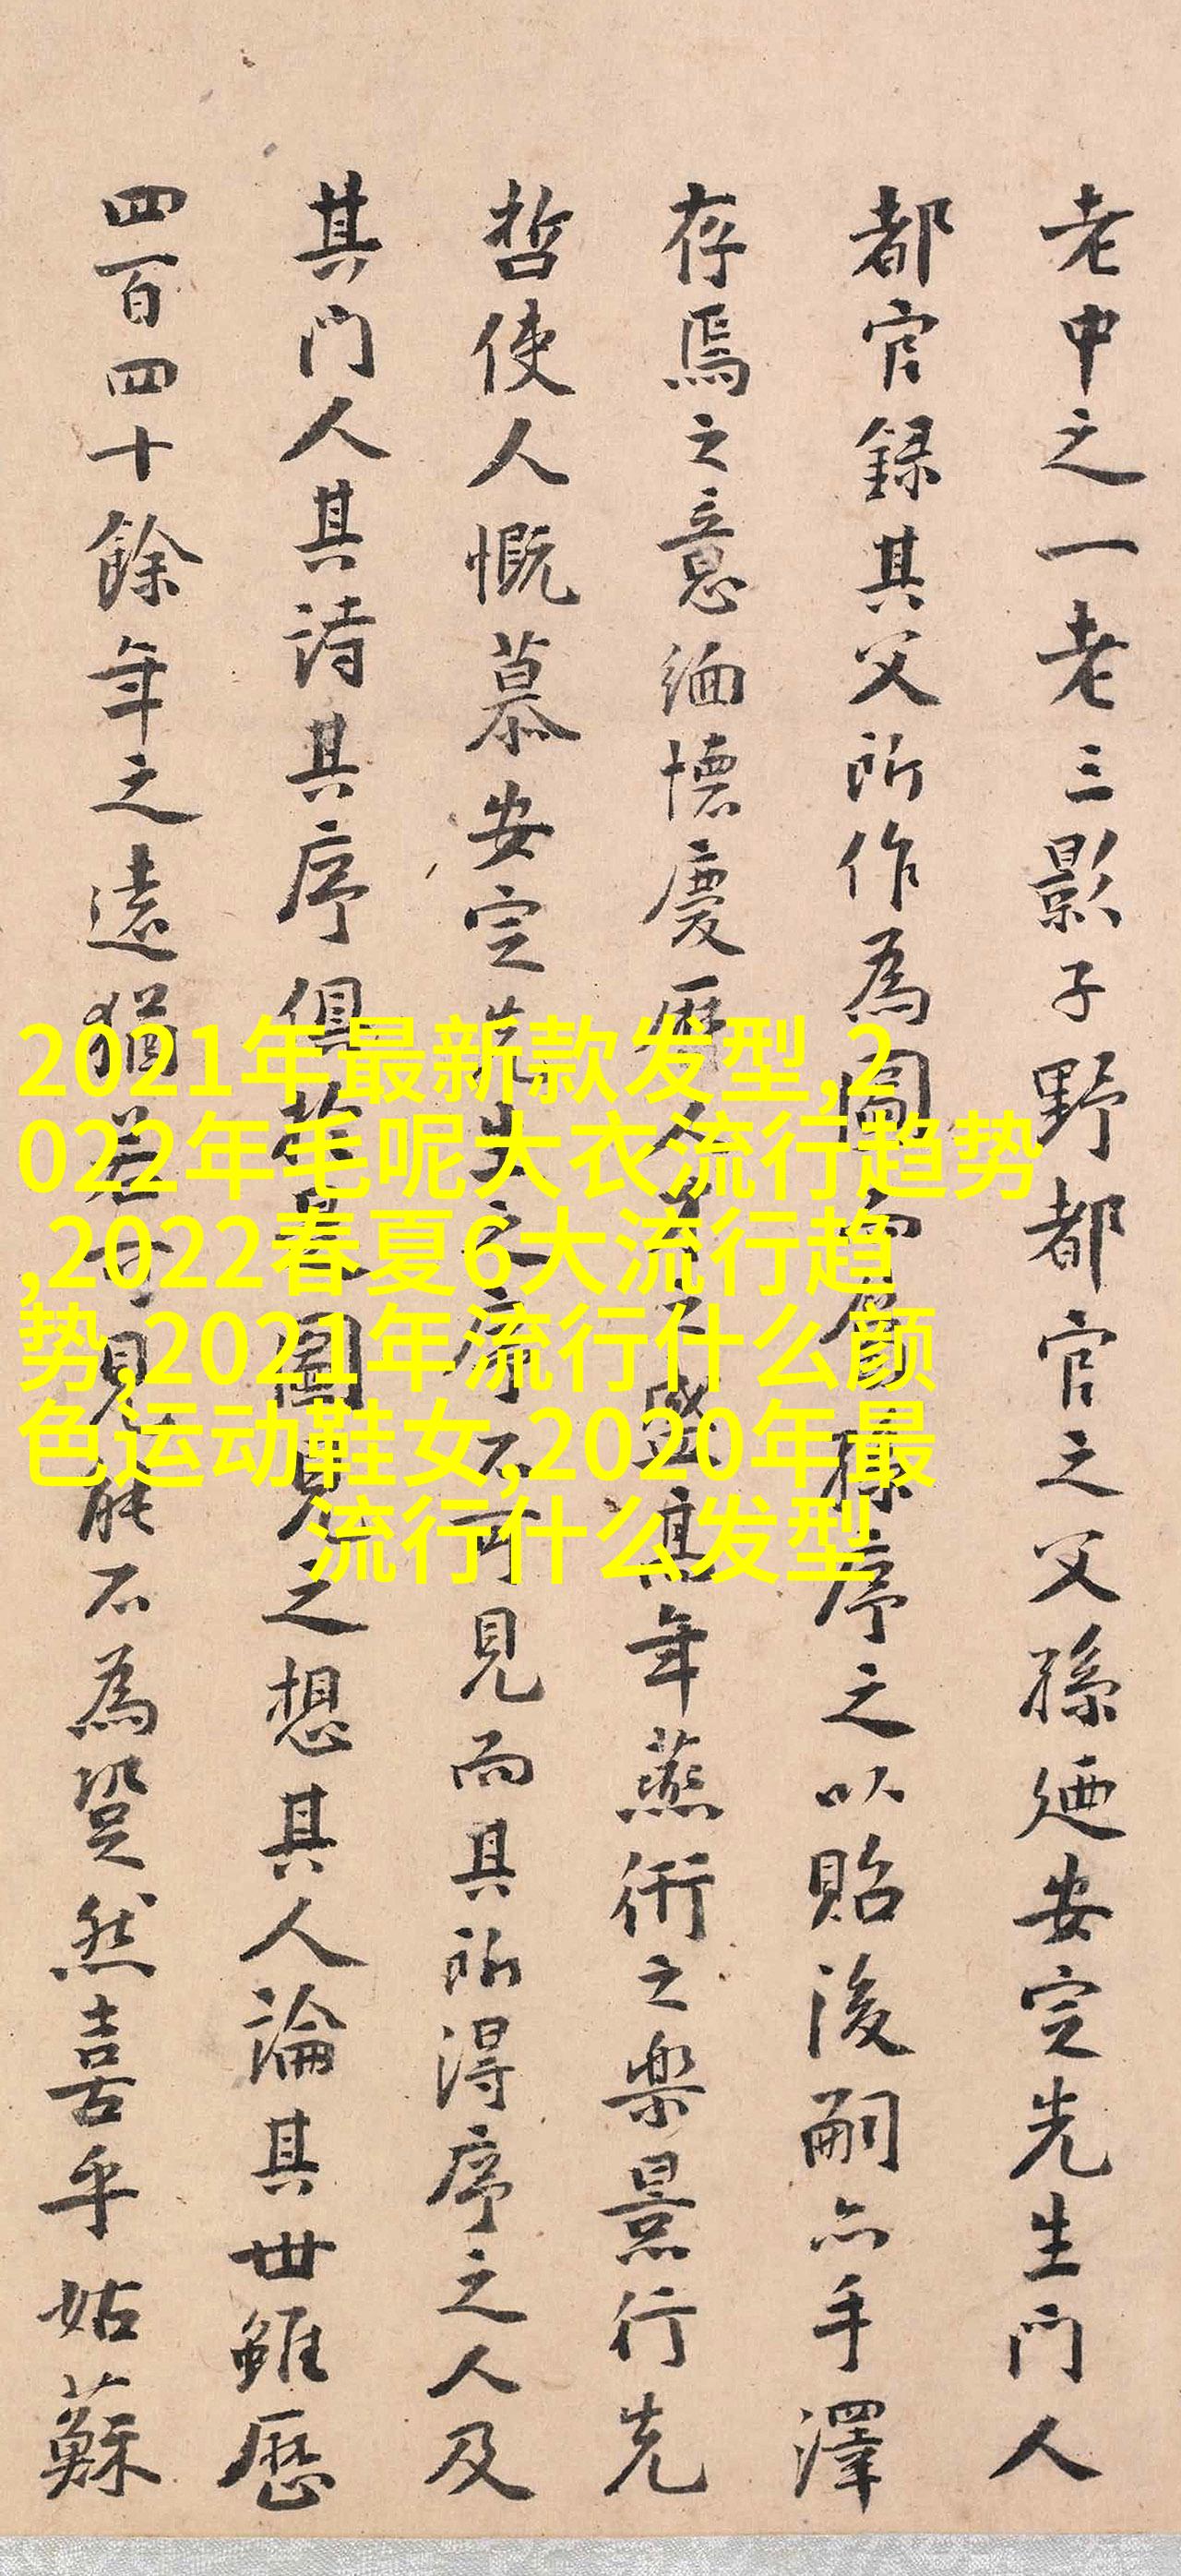 老中之一老三影子野都官之父孫廼安定先生門人
都官録其父所作為圖而屬孫序之以貽後嗣亦手澤
存焉之意緬懷慶曆人才之盛高年燕衎之樂景行先
哲使人慨慕安定先生之序不可見而其所得序之人及
其門人其詩其序俱在是圖見之想其人論其世雖歷
四百四十餘年之遠猶若世見能不為跫然喜乎姑蘇
2021年最新款发型,2
022年毛呢大衣流行趋势
,2022春夏6大流行趋
势,2021年流行什么颜
色运动鞋女,2020年最
流行什么发型